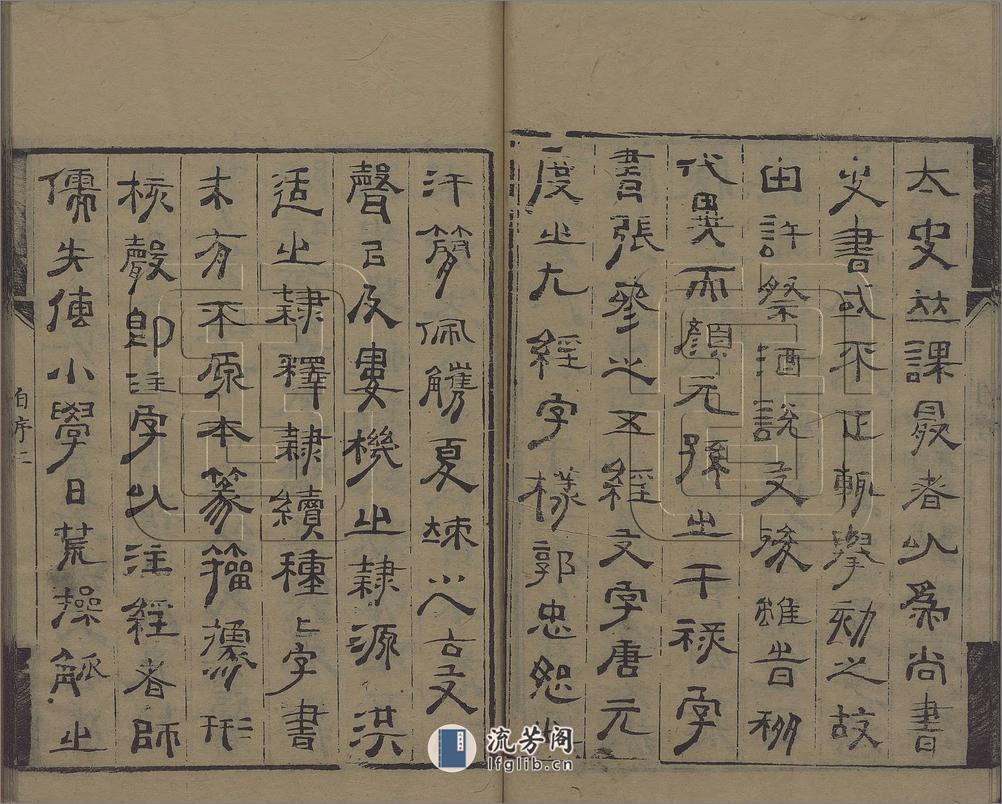 太史並課最者以為尚書
史書或不正輒舉劾之故
由許祭酒說文後雖旹移
代異而顏元孫之干祿字
書張參之五經文字唐元
度之九經字樣郭忠恕之
汗簡佩觿夏竦之古文
聲㠯及婁機之隸源洪
适之隸釋隸續種種字書
未有不原本篆籀據形
核聲即注字以注經者師
儒失傳小學日荒操觚之
自序二
流芳阁
lfglib.cn